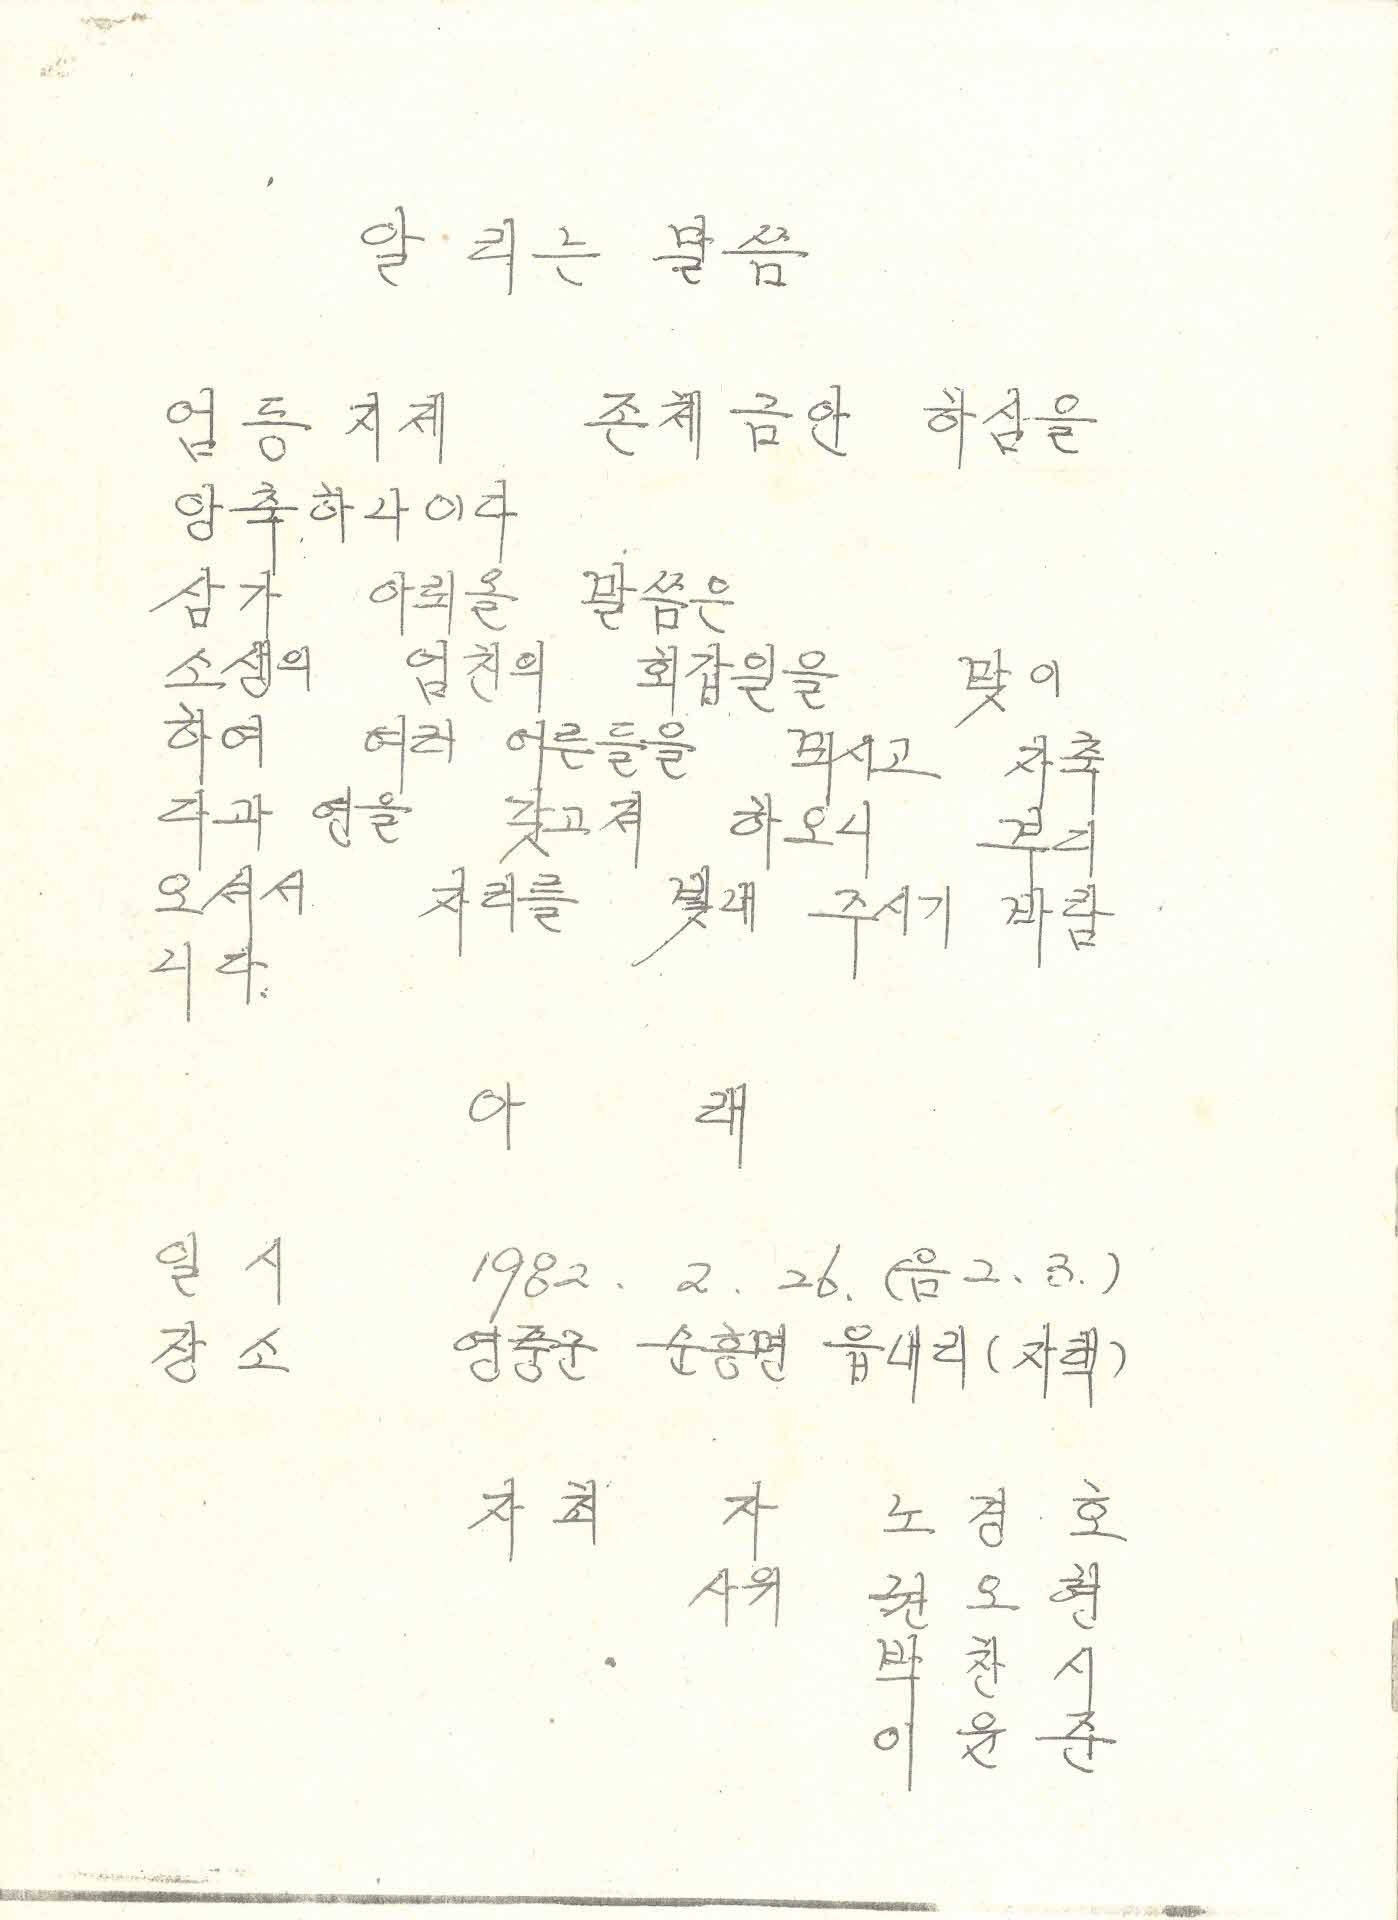 알리는 말씀
엄동지제 존체금안 하심을
앙축하나이다
삼가 아뢰올 말씀은
소생의 엄친의 회갑일을 맞이
하여 여러 어른들을 뫼시고 자축
다과연을 갖고저 하오니 부디
오셔서 자리를 빛내 주시기 바람
니다.
아 래
일 시 1982. 2. 26. (음 2. 3.)
장 소 영풍군 순흥면 읍내리 (자택)
자최 자 노경호
사위 권오현
박찬시
이윤준